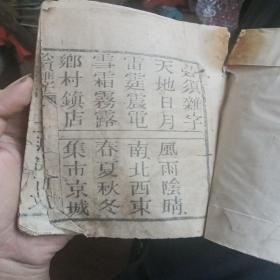 必須雜字
天地日月
風雨陰晴
雷霆震電
南北西東
雲霜霧露
春夏秋冬
鄉村鎮店
集市京城